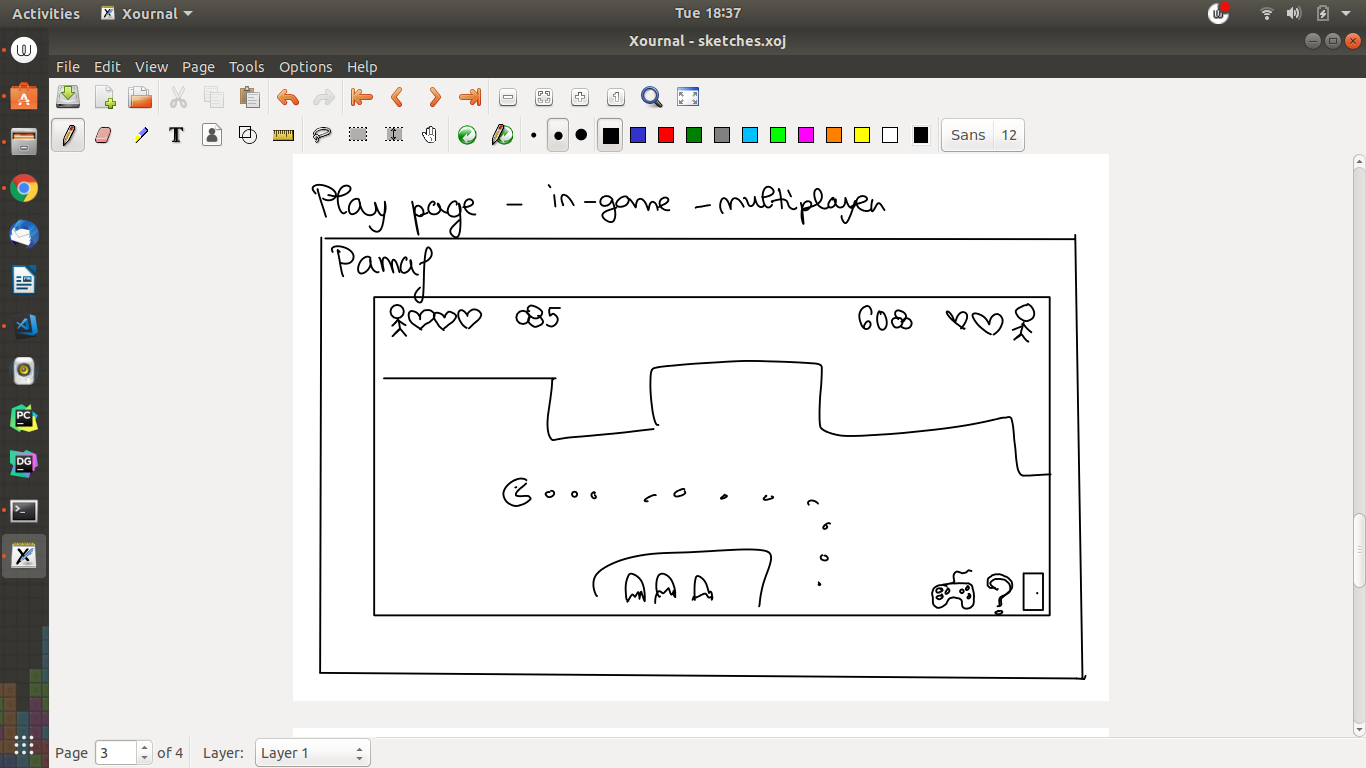 Activities Xournal Tue 18:37
Xournal - sketches.xoj
File Edit View Page Tools Options Help
T Sans 12
Play page - in-game - multiplayer
Pamaf
5 60
?
PC
DG
Page 3 of 4 Layer: Layer 1